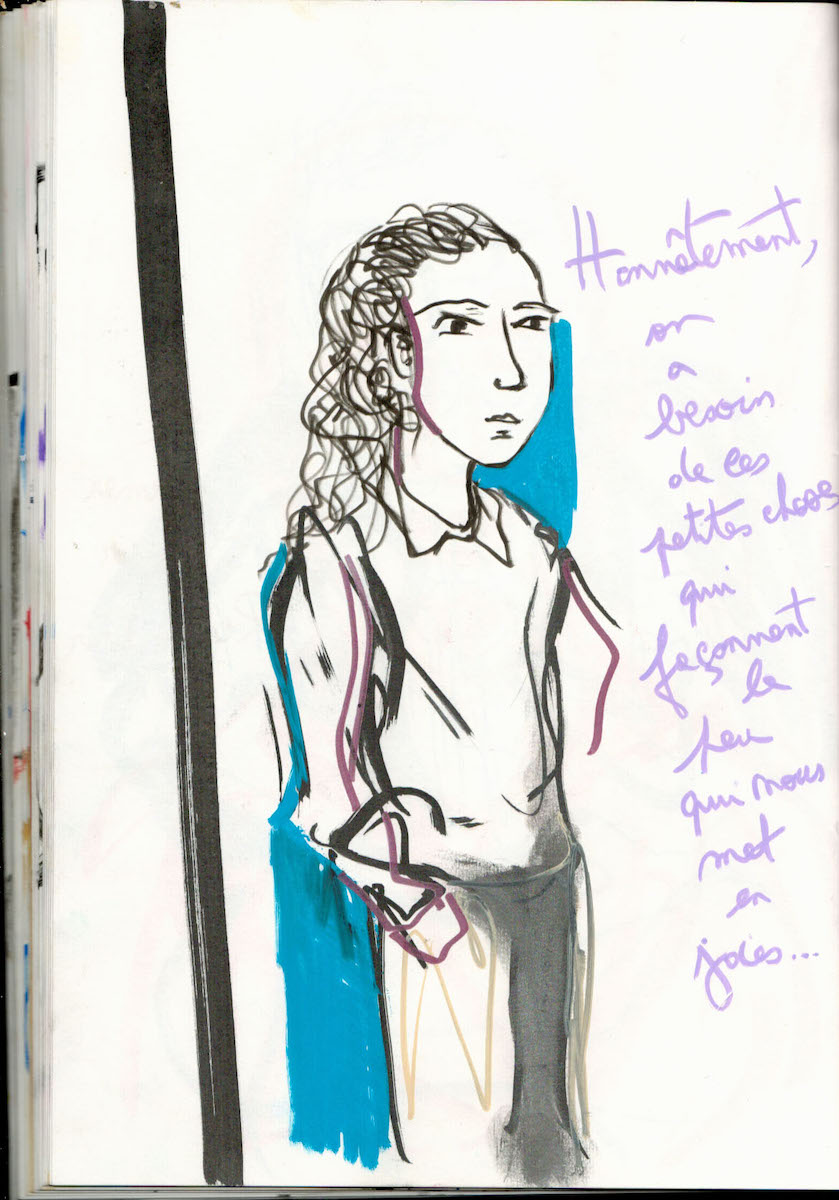 Honnêtement,
on
a
besoin
de ces
petites choses
qui
façonnent
le
peu
qui nous
met
en
joies...